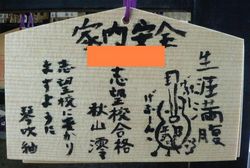 家内安全
生涯満腹
志望校合格
秋山澪
志望校に受かり
ますように
琴吹紬